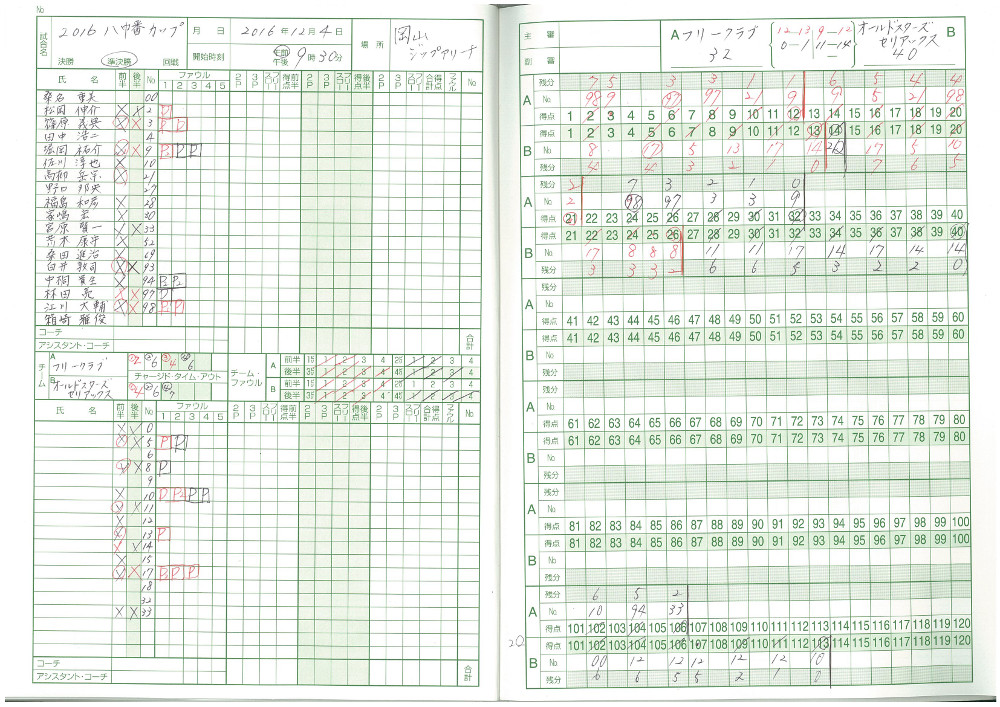 No
試合名 2016 八中番カップ 月 日 2016年12月4日 場所 岡山 ジップアリーナ
決勝 準決勝 回戦 開始時刻 午前 午後 9時30分
氏 名 前半 後半 No ファウル 1 2 3 4 5 2P 3P スロー フリー 前半得点 2P 3P スロー フリー 後半得点 2P 3P スロー フリー 合計得点 ファウル No
桑名 重美 00
松岡 伸介 2 P
篠原 義典 3 P P
田中 浩二 4
堀岡 祐介 9 P2 P P
佐川 淳也 10
高柳 岳宗 21
野口 邦央 27
福島 和房 28
家嶋 宏 30
宮原 賢一 33
荒木 康守 52
桑田 進治 69
白井 敦司 93
中桐 實生 94 P2 P2
林田 亮 97 P
江川 大輔 98 P P
箱崎 雅俊
コーチ 合計
アシスタント・コーチ
チーム A フリークラブ 2 6 4 6
チャージド・タイム・アウト
B オールドスターズ ゼリアックス 4 6 7
チーム・ファウル A 前半 1S 1 2 3 4 2S 1 2 3 4
後半 3S 1 2 3 4 4S 1 2 3 4
B 前半 1S 1 2 3 4 2S 1 2 3 4
後半 3S 1 2 3 4 4S 1 2 3 4
氏 名 前半 後半 No ファウル 1 2 3 4 5 2P 3P スロー フリー 前半得点 2P 3P スロー フリー 後半得点 2P 3P スロー フリー 合計得点 ファウル No
0
5 P P
6
8 P
9
10 P P2 P P
11
12
13 P
14
15
17 P2 P P
18
32
33
コーチ 合計
アシスタント・コーチ
主審 A フリークラブ 12-13 9-12 オールドスターズ ゼリアックス B
副審 32 0-1 11-14 - 40
A 残分 7 5 3 3 1 1 6 5 4 4
No 98 9 97 97 21 9 9 5 21 98
得点 1 2 3 4 5 6 7 8 9 10 11 12 13 14 15 16 17 18 19 20
得点 1 2 3 4 5 6 7 8 9 10 11 12 13 14 15 16 17 18 19 20
B No 8 17 5 13 17 14 17 5 10
残分 4 4 3 2 1 0 7 6 5
A 残分 2 7 3 2 1 0
No 2 98 97 3 3 9
得点 21 22 23 24 25 26 27 28 29 30 31 32 33 34 35 36 37 38 39 40
得点 21 22 23 24 25 26 27 28 29 30 31 32 33 34 35 36 37 38 39 40
B No 17 8 8 8 11 11 17 14 17 14 14
残分 3 3 3 2 6 6 5 3 2 2 0
A 残分
No
得点 41 42 43 44 45 46 47 48 49 50 51 52 53 54 55 56 57 58 59 60
得点 41 42 43 44 45 46 47 48 49 50 51 52 53 54 55 56 57 58 59 60
B No
残分
A 残分
No
得点 61 62 63 64 65 66 67 68 69 70 71 72 73 74 75 76 77 78 79 80
得点 61 62 63 64 65 66 67 68 69 70 71 72 73 74 75 76 77 78 79 80
B No
残分
A 残分
No
得点 81 82 83 84 85 86 87 88 89 90 91 92 93 94 95 96 97 98 99 100
得点 81 82 83 84 85 86 87 88 89 90 91 92 93 94 95 96 97 98 99 100
B No
残分
A 残分 6 5 2
No 10 94 33
得点 101 102 103 104 105 106 107 108 109 110 111 112 113 114 115 116 117 118 119 120
20 得点 101 102 103 104 105 106 107 108 109 110 111 112 113 114 115 116 117 118 119 120
B No 00 12 12 12 12 12 10
残分 6 6 5 5 2 1 0